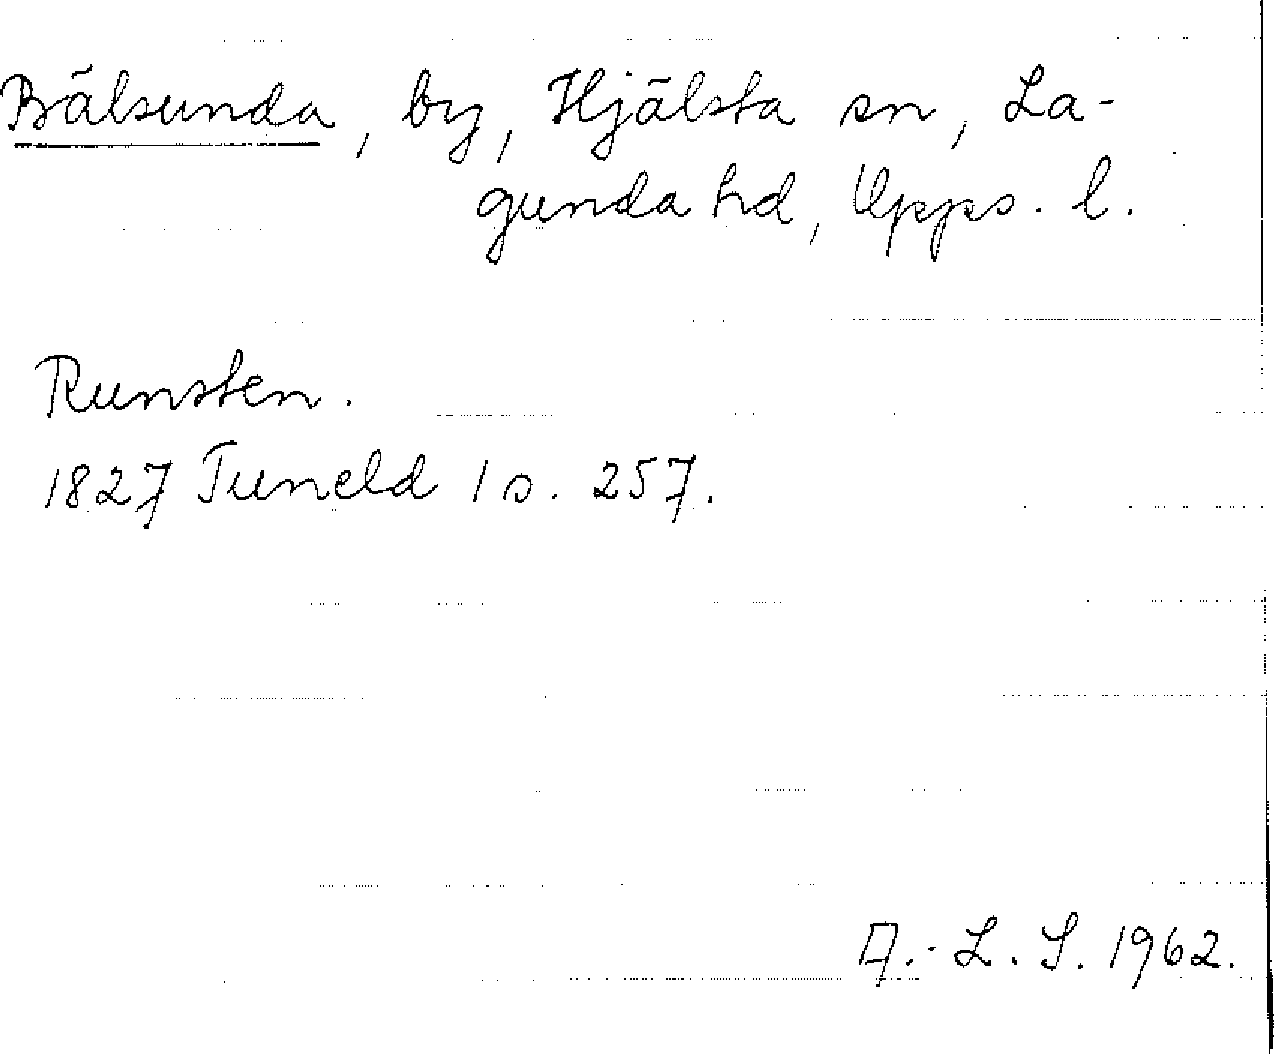 Bälsunda, by, Hjälsta sn, La-
gunda hd, Upps. l.
Runsten.
1827 Tuneld 1 s. 257.
A.-L. S. 1962.